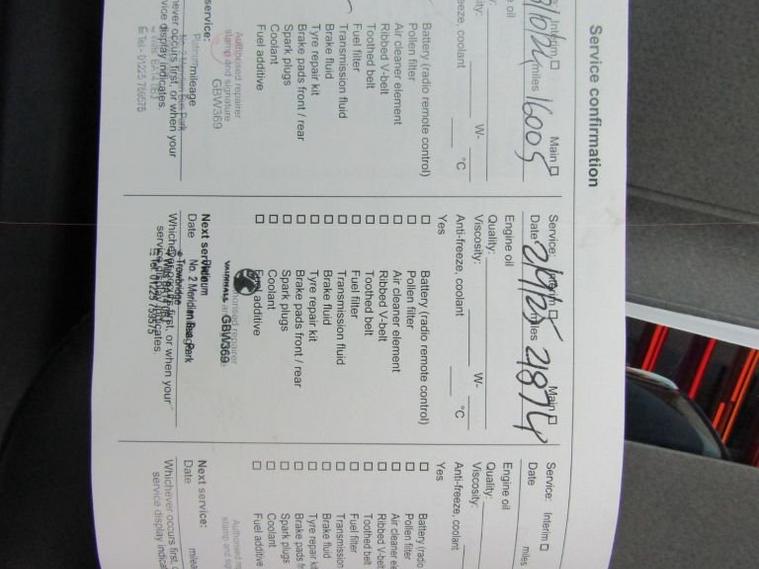 Service confirmation
Interim Main
miles 16005
e oil
ity: W-
eeze, coolant °C
Battery (radio remote control)
Pollen filter
Air cleaner element
Ribbed V-belt
Toothed belt
Fuel filter
Transmission fluid
Brake fluid
Tyre repair kit
Brake pads front / rear
Spark plugs
Coolant
Fuel additive
Authorised repairer
stamp and signature
GBW369
service:
mileage
never occurs first, or when your
vice display indicates.
Service: Interim Main
Date miles 21874
Engine oil
Quality:
Viscosity: W-
Anti-freeze, coolant °C
Yes
Battery (radio remote control)
Pollen filter
Air cleaner element
Ribbed V-belt
Toothed belt
Fuel filter
Transmission fluid
Brake fluid
Tyre repair kit
Brake pads front / rear
Spark plugs
Coolant
Fuel additive
VAUXHALL GBW369
Next service:
Date
No. 2 Meridian Bus. Park
Trowbridge
Whichever occurs first, or when your
service display indicates.
Service: Interim
Date miles
Engine oil
Quality:
Viscosity:
Anti-freeze, coolant
Yes
Battery (radio
Pollen filter
Air cleaner ele
Ribbed V-belt
Toothed belt
Fuel filter
Transmission
Brake fluid
Tyre repair kit
Brake pads f
Spark plugs
Coolant
Fuel additive
Authorised re
stamp and sig
Next service:
Date milea
Whichever occurs first,
service display indica